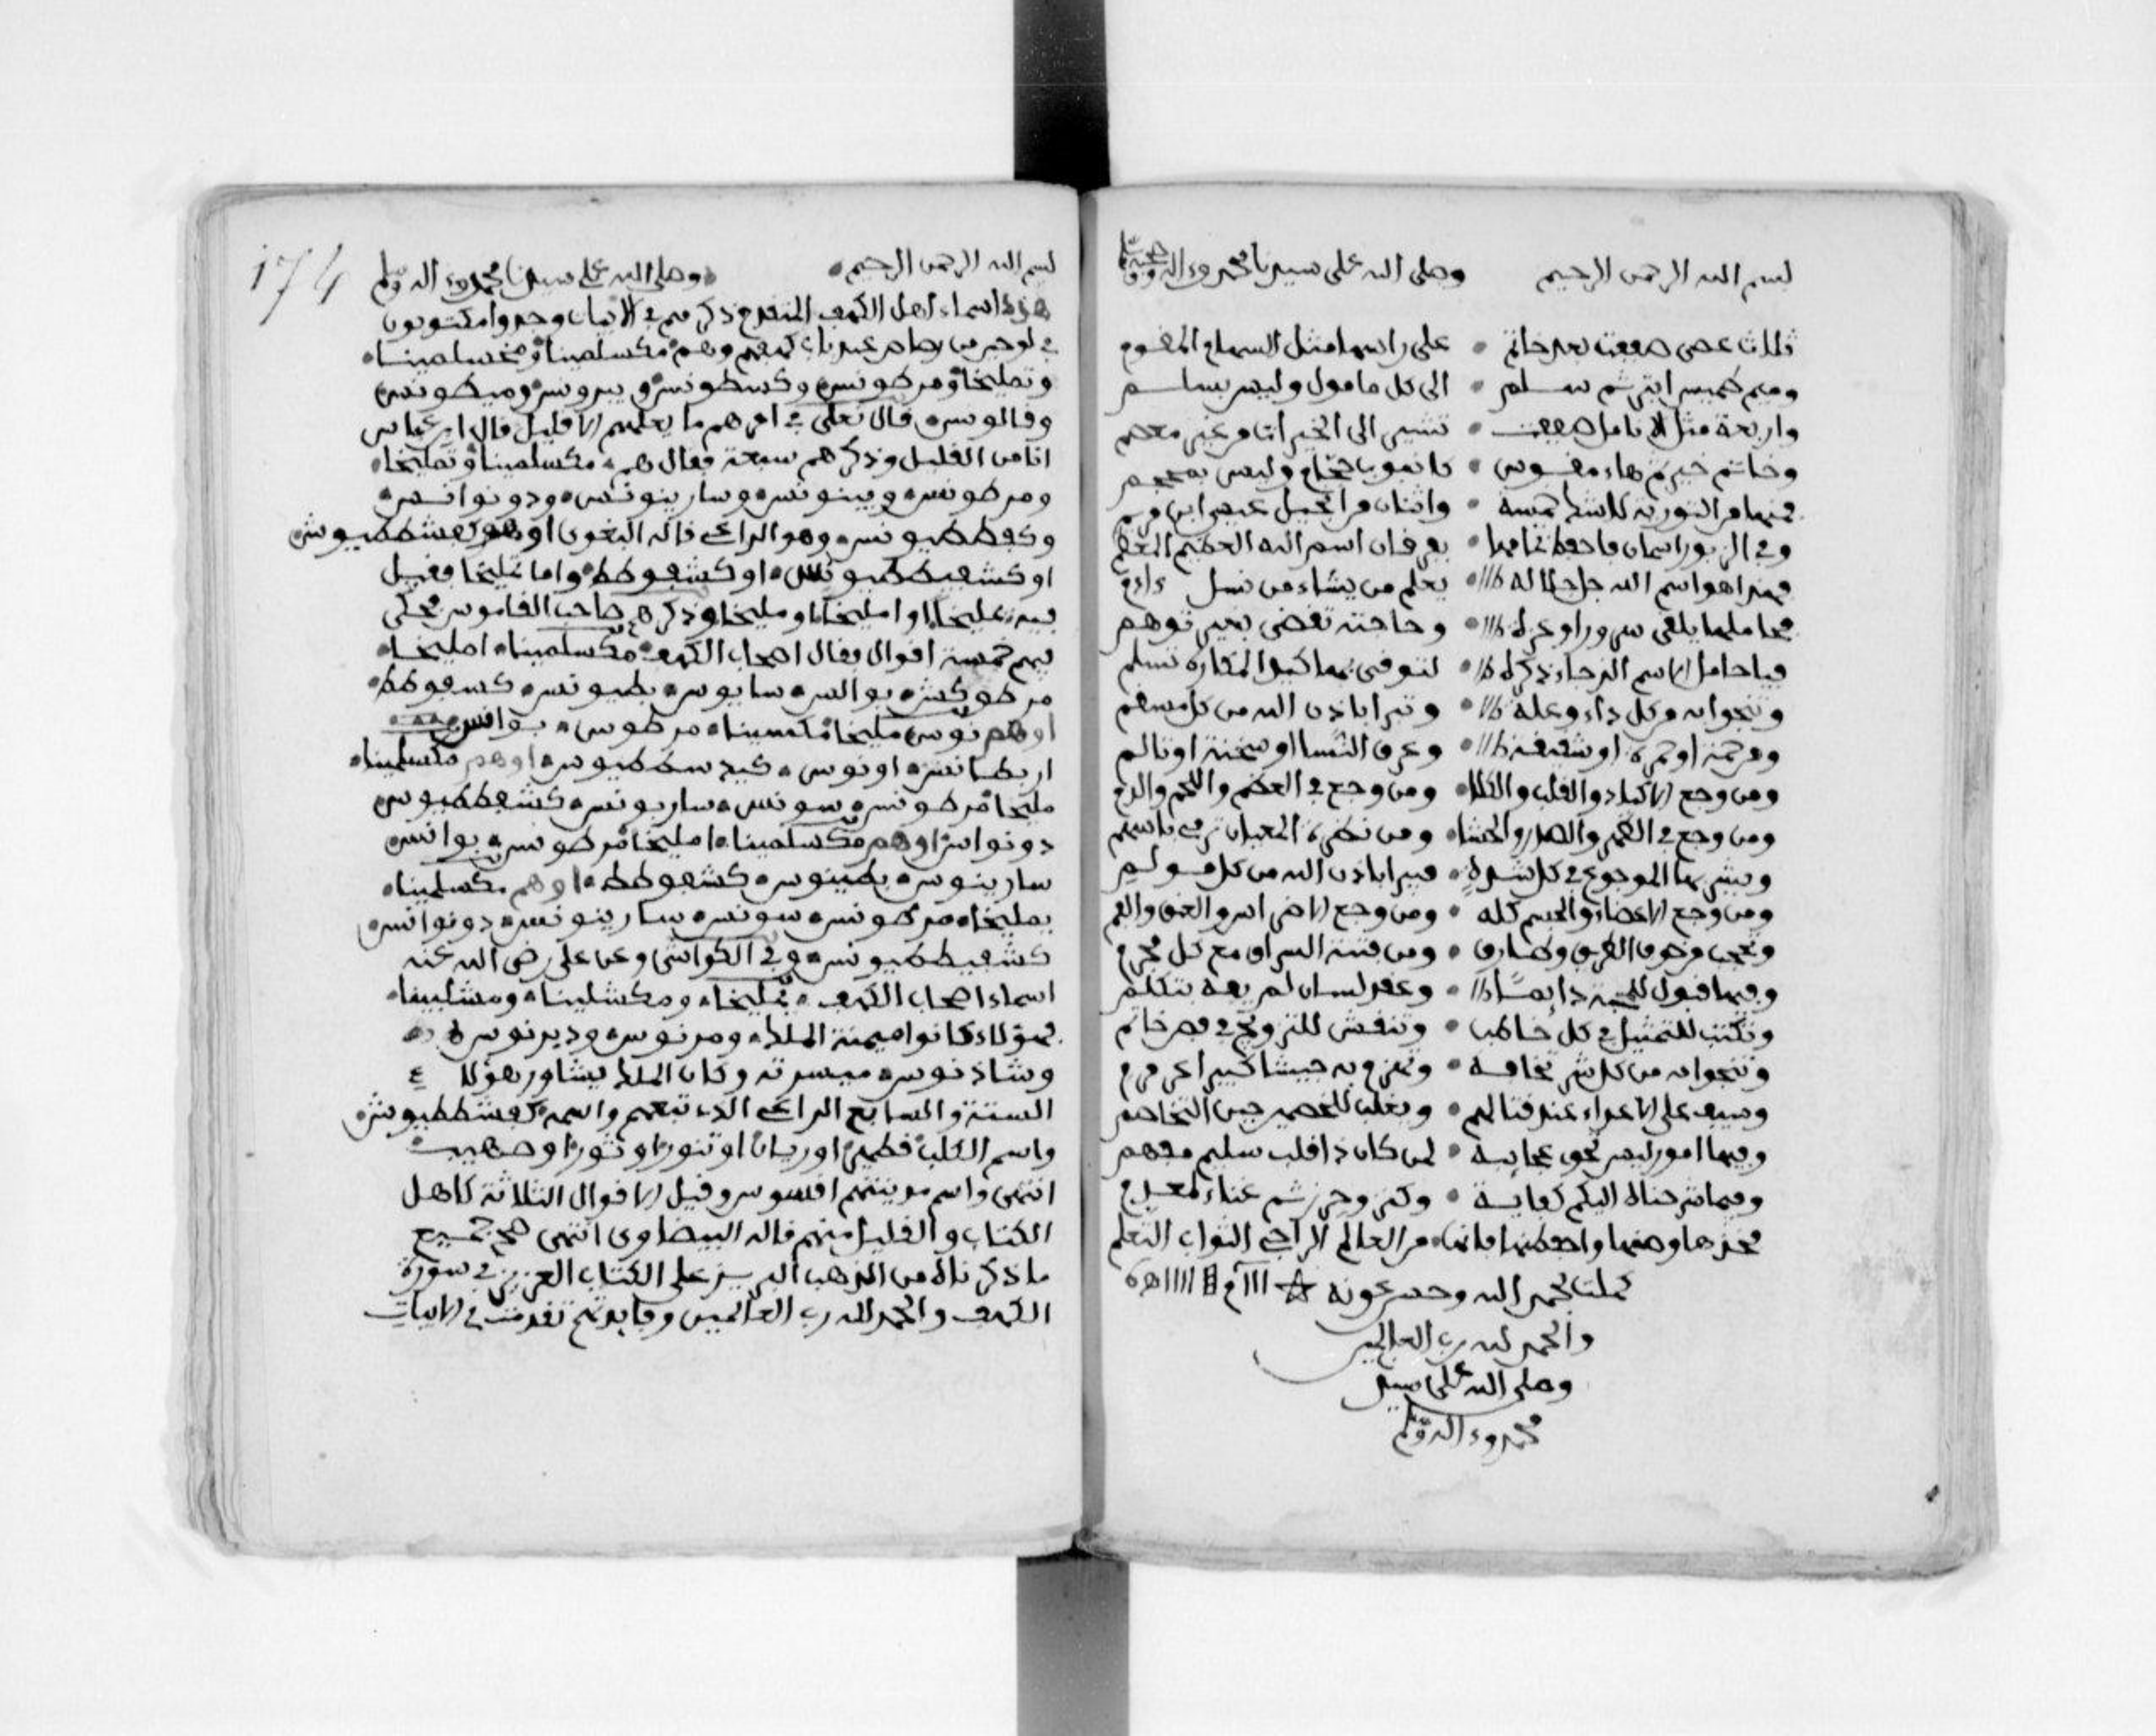 بسم الله الرحمن الرحيم وصلى الله على سيدنا محمد وءاله وصحبه وسلم
ثلاث عصى صففت بعد خاتم • على راسها مثل السهام المقوم
وميم طميس ابتر ثم سلم • الى كل مامول وليس بسلم
واربعة مثل الانامل صففت • تشير الى الخيرات من غير معصم
وخاتم خير هاء مقوس • كانبوب حجام وليس بمحجم
فمنها من التورية لا شك خمسة • واثنان من انجيل عيسى ابن مريم
وفي الزبور اسمان فاحفظ
فهذا هو اسم الله جل جلاله • يعلم من يشاء من نسل ءادم
فحاملها يلقى سرورا وعزة • وحاجته تقضى بغير توهم
فيا حامل الاسم الذي جاء ذكره • لتوقى بها كل المكاره تسلم
وتنجوا به من كل داء وعلة • وتبرا باذن الله من كل مسهم
ومن حمة او حمرة او شقيقة • وعرق النسا او سخنة او تالم
ومن وجع الاكباد والقلب والكلا • ومن وجع في العظم واللحم والدم
ومن وجع في الظهر والصدر والحشا • ومن نظرة المعيان ترمى باسهم
ويشرى بها الموجوع في كل شدة • فيبرا باذن الله من كل مولم
ومن وجع الاعضاء والجسم كله • ومن وجع الاضراس والعين والفم
وتحجب من خوف الغريق وطارق • ومن فتنة السراق مع كل مجرم
وفيها قبول للمحبة دايما • وعقد لسان لم يعد يتكلم
وتكتب للتمثيل في كل خاطب • وتنقش للتزويج في فص خاتم
وتنجوا به من كل شر تخافه • وتهزم به جيشا كبيرا عرمرم
وسيف على الاعداء عند قتالهم • وتغلب للخصم حين التخاصم
وفيها امور ليس تحصى عجايبه • لمن كان ذا قلب سليم مفهم
وفيما شرحناه اليكم كفاية • وكنز وحرز ثم غناء لمعدم
فخذها وصنها واحفظنها فانها • من العالم الراجي الثواب المعلم
كملت بحمد الله وحسن عونه
والحمد لله رب العالمين
وصلى الله على سيدنا
محمد وءاله وسلم
174
بسم الله الرحمن الرحيم • وصلى الله على سيدنا محمد وءاله وسلم
هذه اسماء اهل الكهف المتقدم ذكرهم في الابيات وجدوا مكتوبون
في لوح من رصاص عند باب كهفهم وهم مكسلمينا ومخسلمينا
وتمليخا ومرطونس وكسطونس وبيرونس
وقالوس • قال تعلى في امرهم ما يعلمهم الا قليل قال ابن عباس
انا من القليل وذكرهم سبعة فقال هم مكسلمينا وتمليخا
ومرطونس وبينونس وسارينونس ودونوانس
وكفططيونس وهو الراعي قاله البغوي او هو كفشططيوش
او كشفيططيونس او كشفوطط واما تمليخا فقيل
فيه تمليخا او امليخا او مليخا وذكرهم صاحب القاموس فحكى
فيهم خمسة اقوال فقال اصحاب الكهف مكسلمينا امليخا
مرطوكش نوالس سانيوس بطنيونس كشفوطط
او هم نوس مليخا مكسمينا مرطوس نوانس
اربطانس اونوس كيد سلططيوس او هم مكسلمينا
مليخا مرطونس سونس ساربونس كشفططيوس
دونوانس او هم مكسلمينا امليخا مرطونس يوانس
سارينوس بطنيوس كشفوطط او هم مكسلمينا
يمليخا مرطونس سونس سارينونس دونوانس
كشفيططيونس وفي الكواشي وعن علي رضي الله عنه
اسماء اصحاب الكهف يمليخا ومكشلينا ومشلينا
فهؤلاء كانوا ميمنة الملك ومرنوس وديرنوس
وشاذنوس ميسرته وكان الملك يشاور هؤلاء
الستة والسابع الراعي الذي تبعهم واسمه كفشططيوش
واسم الكلب قطمير او ريان او تنور او ثور او صهيب
انتهى واسم مدينتهم افسوس وقيل الاقوال الثلاثة لاهل
الكتاب والقليل منهم قاله البيضاوي انتهى صح جميع
ما ذكرناه من الذهب الابريز على الكتاب العزيز في سورة
الكهف والحمد لله رب العالمين وفايدتهم تقدمت في الابيات